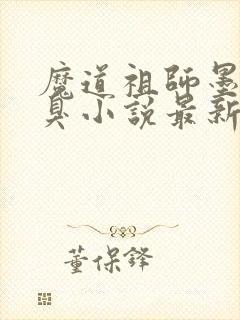 魔道祖師墨
臭小説最新
董保鋒